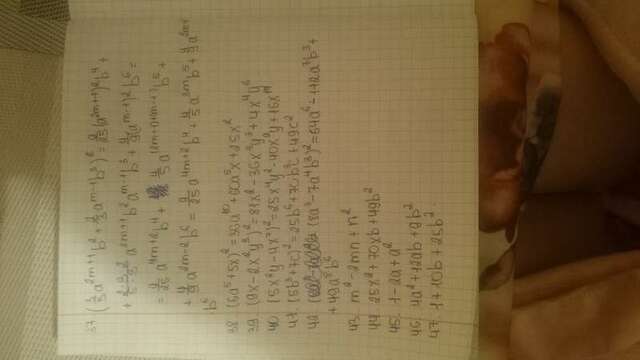 37 (3/5 a^{2m+1}b^2 + 2/3 a^{m-1}b^3)^2 = 9/25 (a^{2m+1})^2 b^4 +
+ 2·3·2/5·3 a^{2m+1}b^2 a^{m-1}b^3 + 4/9 (a^{m-1})^2 b^6 =
= 9/25 a^{4m+2}b^4 + 4/5 a^{(2m+1)+(m-1)}b^5 +
+ 4/9 a^{2m-2}b^6 = 9/25 a^{4m+2}b^4 + 4/5 a^{3m}b^5 + 4/9 a^{2m-2}
b^6
38. (6a^5+5x)^2 = 36a^{10}+60a^5x+25x^2
39. (9x-2x^2y^3)^2 = 81x^2-36x^3y^3+4x^4y^6
40. (5x^2y-4x^7)^2 = 25x^4y^2-40x^9y+16x^{14}
41. (5b^3+7c)^2 = 25b^6+70b^3c+49c^2
42. (8a^3-7a^4b^3)^2 = 64a^6-112a^7b^3+
+49a^8b^6
43. m^2-2mn+n^2
44. 25x^2+70xb+49b^2
45. 1-2a+a^2
46. 4a^2+12ab+9b^2
47. 1+10b+25b^2